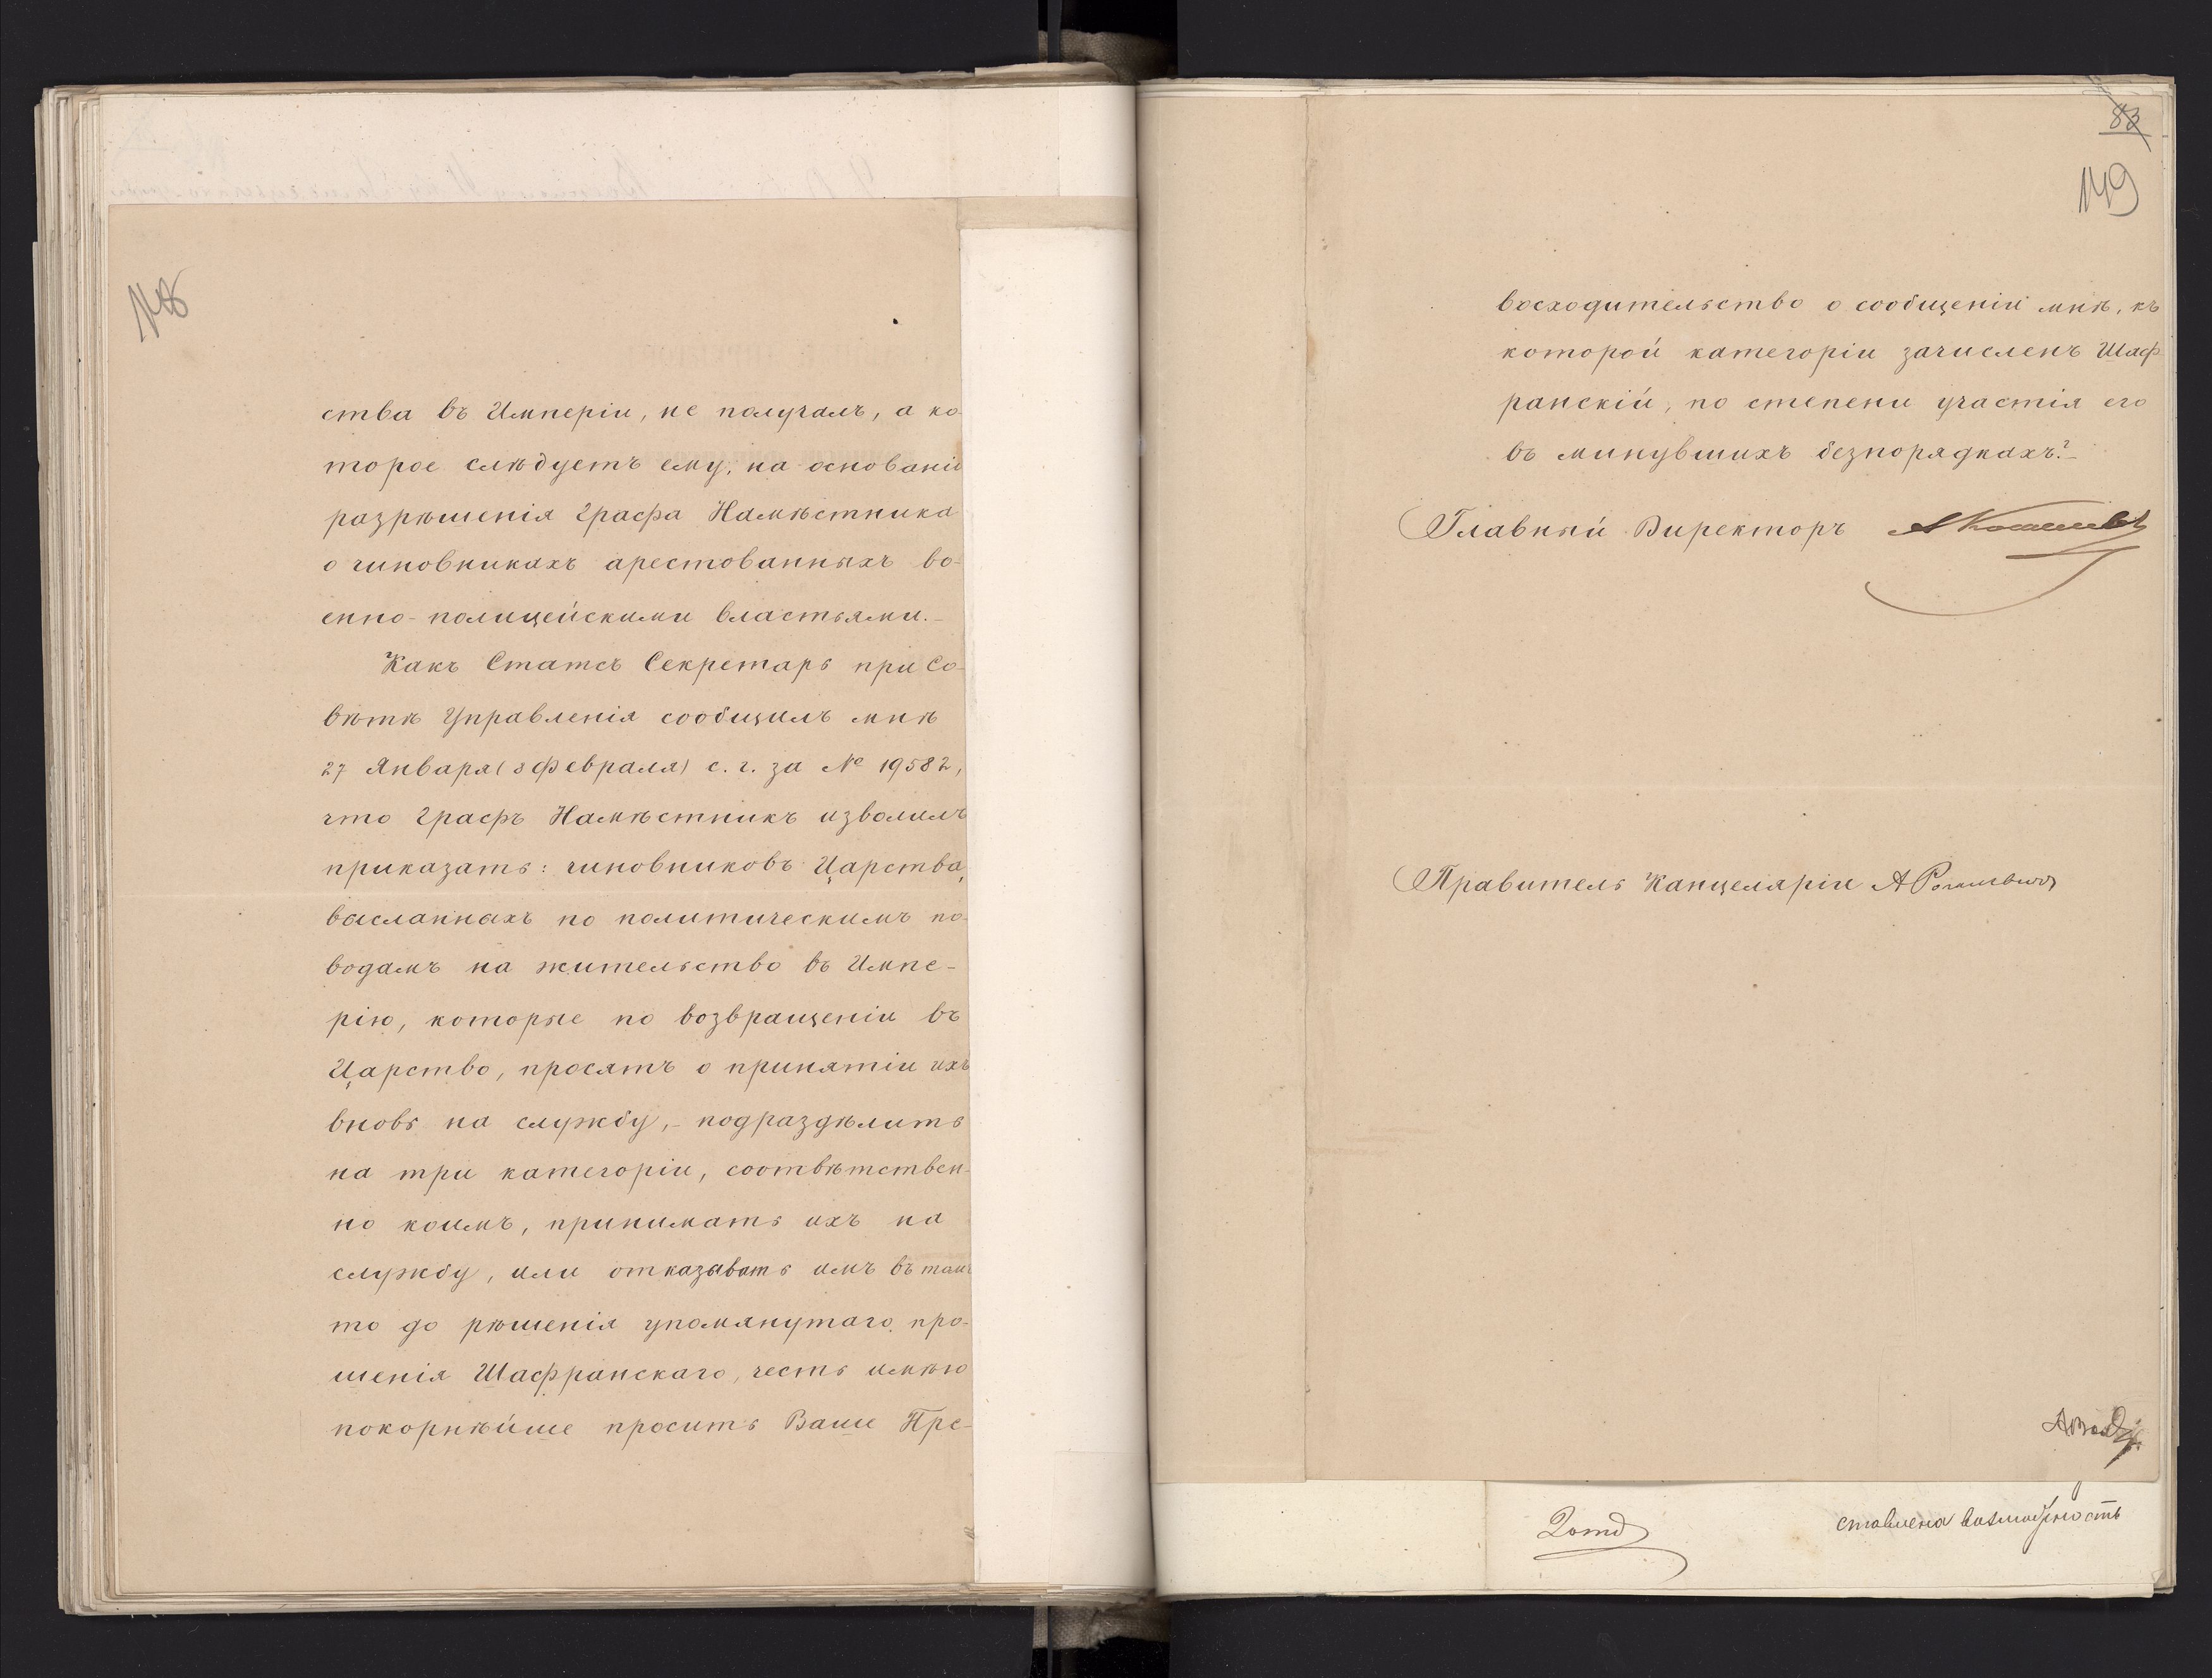 148
ства въ Имперіи, не получалъ, а ко-
торое слѣдуетъ ему, на основаніи
разрѣшенія Графа Намѣстника
о чиновникахъ арестованныхъ во-
енно-полицейскими властьями.-
Какъ Статсъ Секретарь при Со-
вѣтѣ Управленія сообщилъ мнѣ
27 Января (8 Февраля) с. г. за № 19582,
что Графъ Намѣстникъ изволилъ
приказать: чиновниковъ Царства,
высланныхъ по политическимъ по-
водамъ на жительство въ Импе-
рію, которые по возвращеніи въ
Царство, просятъ о принятіи ихъ
вновь на службу,- подраздѣлить
на три категоріи, соотвѣтствен-
но коимъ, принимать ихъ на
службу, или отказывать имъ въ томъ
то до рѣшенія упомянутаго про-
шенія Шафранскаго, честь имѣю
покорнѣйше просить Ваше Пре-
83
149
восходительство о сообщеніи мнѣ, къ
которой категоріи зачисленъ Шаф-
ранскій, по степени участія его
въ минувшихъ безпорядкахъ?-
Главный Директоръ
Правитель Канцеляріи А
ставлена возможность